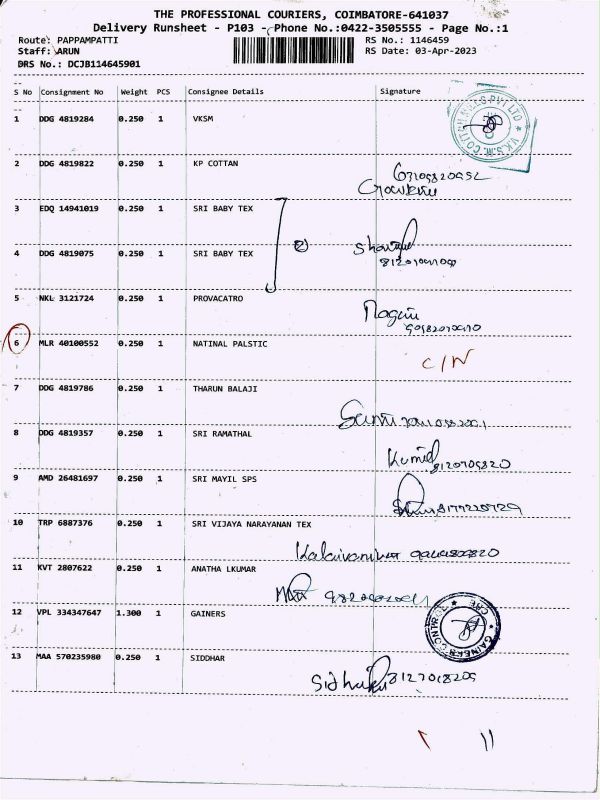 THE PROFESSIONAL COURIERS, COIMBATORE-641037
Delivery Runsheet - P103 - Phone No.:0422-3505555 - Page No.:1
Route: PAPPAMPATTI RS No.: 1146459
Staff: ARUN RS Date: 03-Apr-2023
DRS No.: DCJB114645901
S No Consignment No Weight PCS Consignee Details Signature
1 DDG 4819284 0.250 1 VKSM
2 DDG 4819822 0.250 1 KP COTTAN
3 EDQ 14941019 0.250 1 SRI BABY TEX
4 DDG 4819075 0.250 1 SRI BABY TEX
5 NKL 3121724 0.250 1 PROVACATRO
6 MLR 40100552 0.250 1 NATINAL PALSTIC
C/N
7 DDG 4819786 0.250 1 THARUN BALAJI
8 DDG 4819357 0.250 1 SRI RAMATHAL
9 AMD 26481697 0.250 1 SRI MAYIL SPS
10 TRP 6887376 0.250 1 SRI VIJAYA NARAYANAN TEX
11 KVT 2807622 0.250 1 ANATHA LKUMAR
12 VPL 334347647 1.300 1 GAINERS
13 MAA 570235980 0.250 1 SIDDHAR